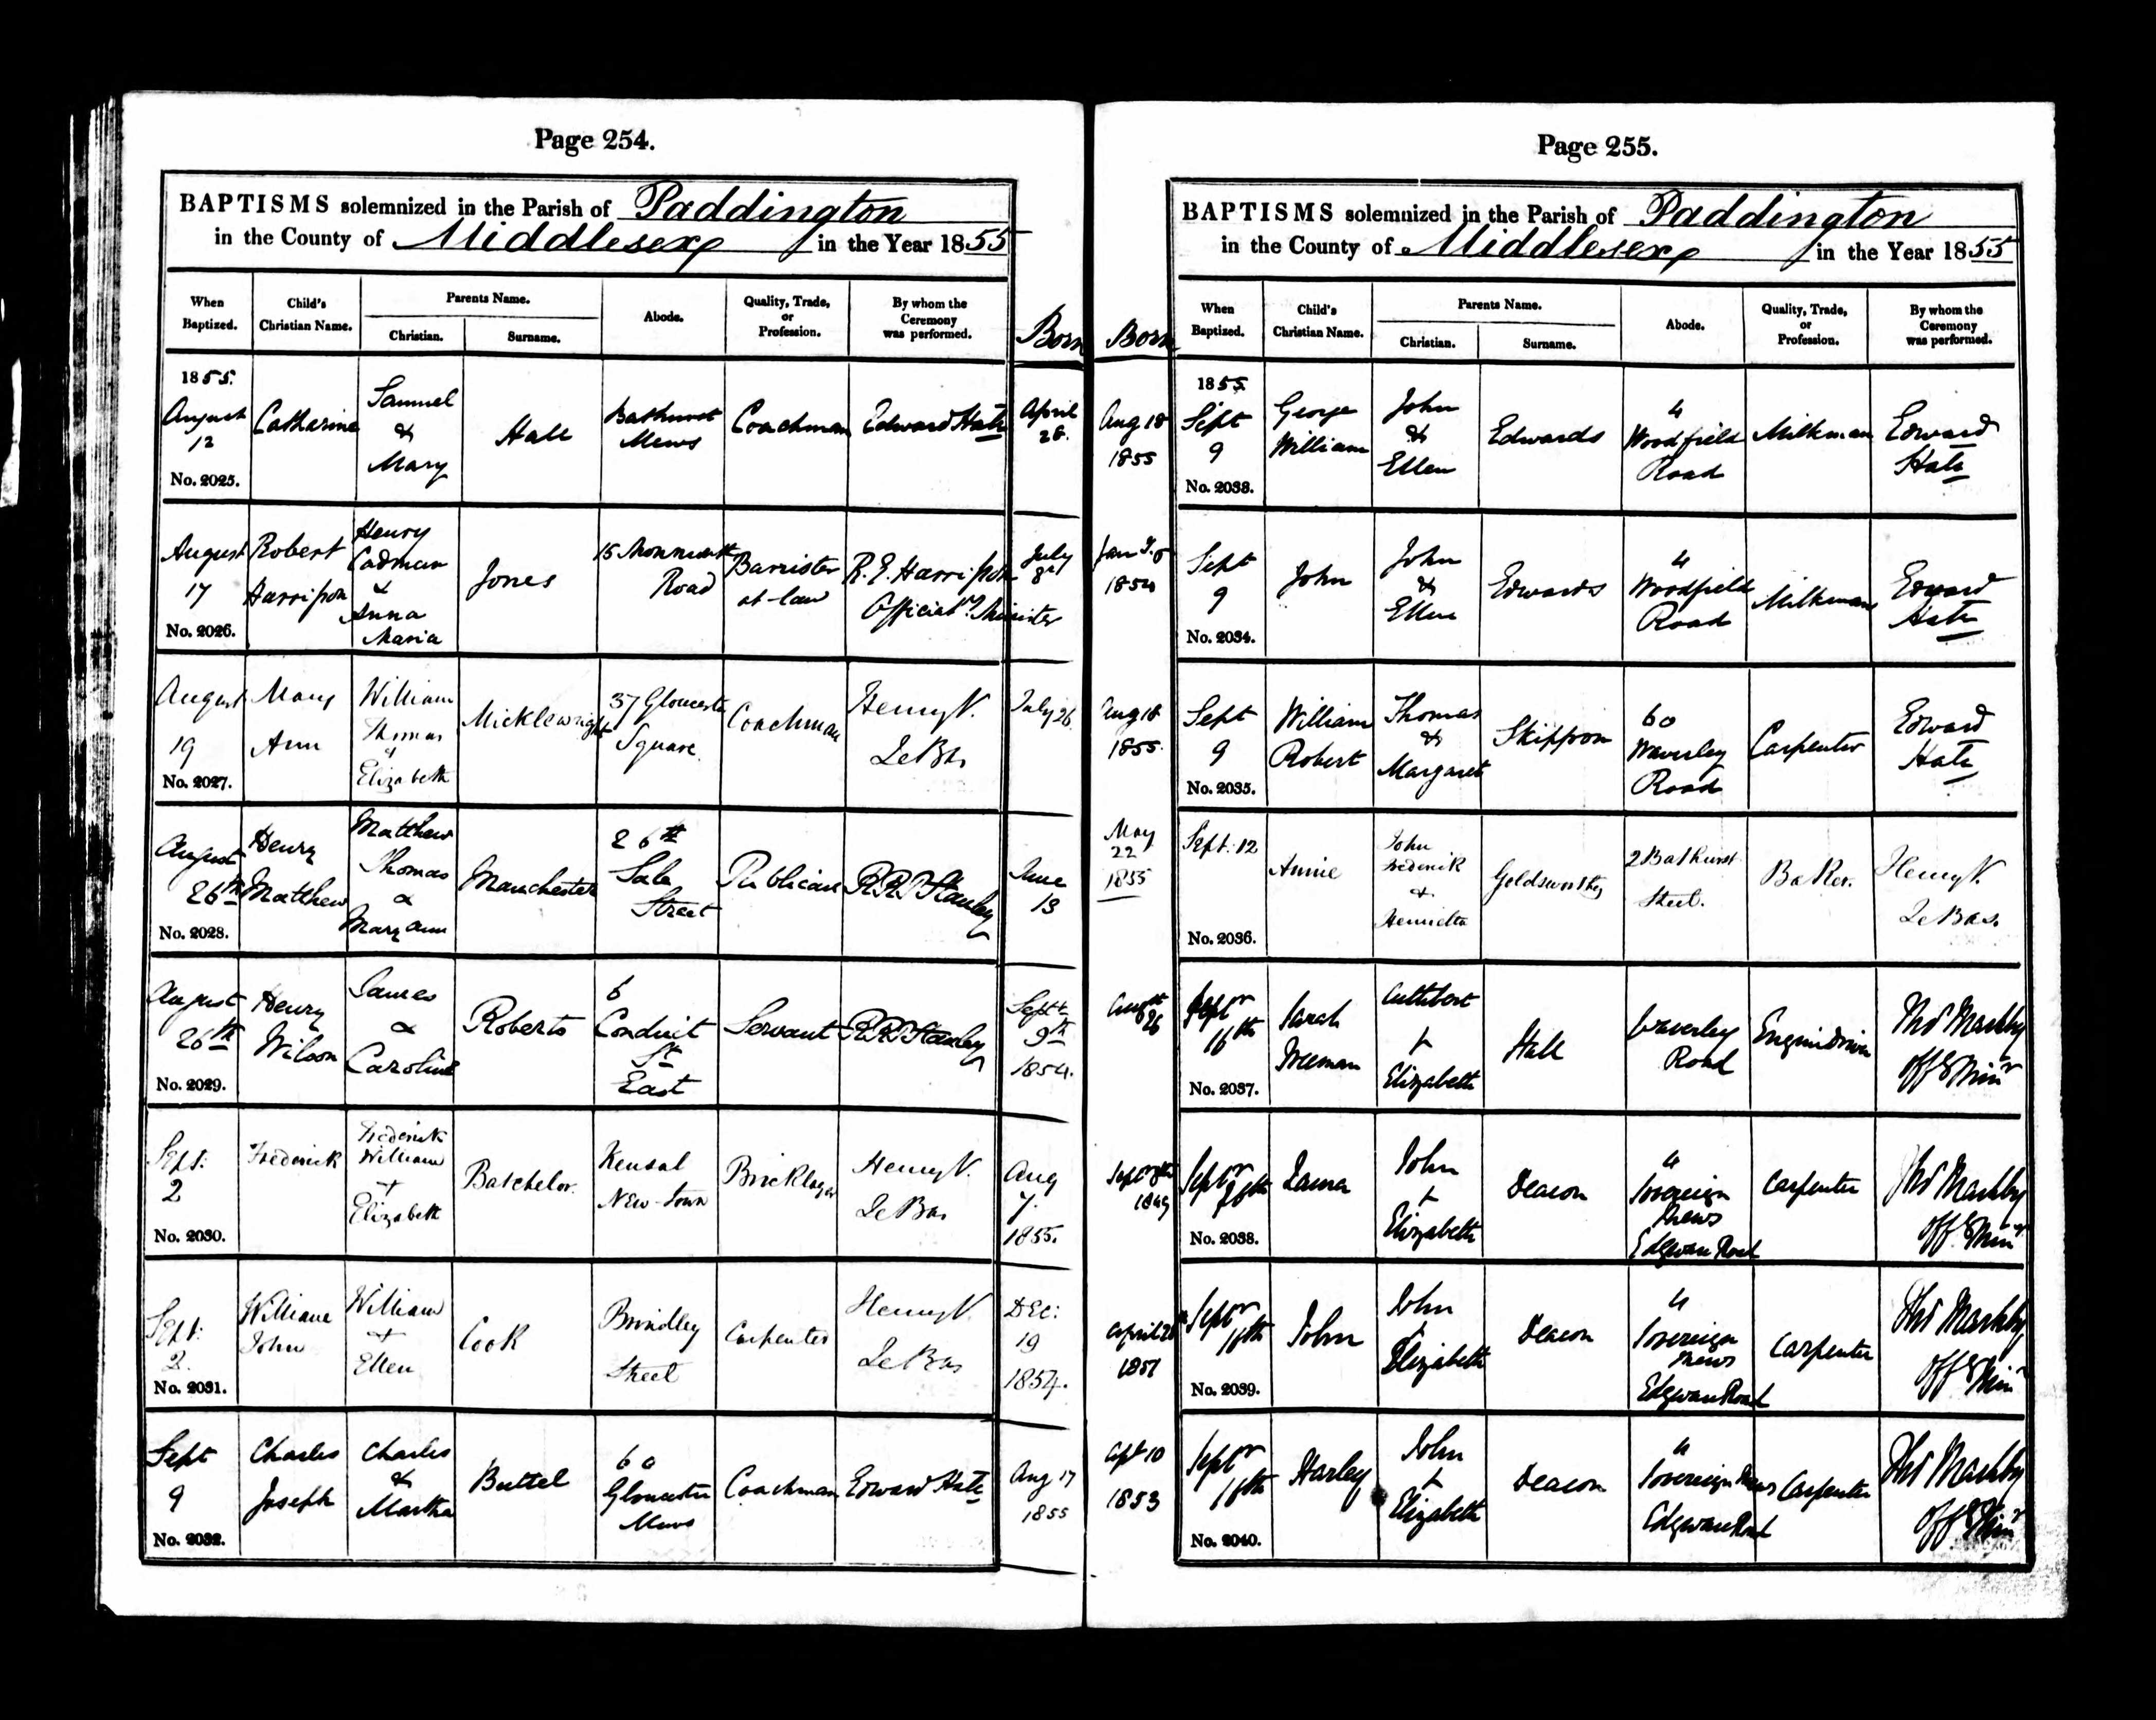 Page 254.
BAPTISMS solemnized in the Parish of Paddington
in the County of Middlesex in the Year 1855
When Baptized. Child's Christian Name. Parents Name. Christian. Surname. Abode. Quality, Trade, or Profession. By whom the Ceremony was performed. Born
1855. August 12 No. 2025. Catharine Samuel & Mary Hale Bathurst Mews Coachman Edward Hate April 28.
August 17 No. 2026. Robert Harrison Henry Cadman & Anna Maria Jones 15 Monmouth Road Barrister at-law R. E. Harrison Officiatg. Minister July 8
August 19 No. 2027. Mary Ann William Thomas & Elizabeth Micklewright 37 Gloucester Square Coachman Henry V. Le Bas July 26
August 26th No. 2028. Henry Matthew Matthew Thomas & Mary Ann Manchester 26th Sale Street Publican Stanley June 13
August 26th No. 2029. Henry Wilson James & Caroline Roberts 6 Conduit St East Servant Stanley Sept 9th 1854.
Sept: 2 No. 2030. Frederick Frederick William + Elizabeth Batchelor. Kensal New-Town Bricklayer Henry V. Le Bas Aug 7. 1855.
Sept: 2. No. 2031. William John William + Ellen Cook Brindley Street Carpenter Henry V. Le Bas Dec: 19 1854.
Sept 9 No. 2032. Charles Joseph Charles & Martha Buttel Gloucester Mews Coachman Edward Hate Aug 17 1855
Page 255.
BAPTISMS solemnized in the Parish of Paddington
in the County of Middlesex in the Year 1855
Born When Baptized. Child's Christian Name. Parents Name. Christian. Surname. Abode. Quality, Trade, or Profession. By whom the Ceremony was performed.
Aug 18 1855 1855 Sept 9 No. 2033. George William John & Ellen Edwards 4 Woodfield Road Milkman Edward Hate
1854 Sept 9 No. 2034. John John & Ellen Edwards 4 Woodfield Road Milkman Edward Hate
Aug 18 1855. Sept 9 No. 2035. William Robert Thomas & Margaret Skippon 60 Waverley Road Carpenter Edward Hate
May 22 1855 Sept: 12 No. 2036. Annie John Frederick + Henrietta Goldsworthy 2 Bathurst Street. Baker. Henry V. Le Bas.
26 Septr 16th No. 2037. Sarah Cuthbert + Elizabeth Hall Waverley Road Engine driver Thos Mashby Offg Minr
1849 Septr 16th No. 2038. Laura John + Elizabeth Deacon 4 Sovereign Mews Edgware Road Carpenter Thos Mashby Offg Minr
April 1851 Septr 16th No. 2039. John John + Elizabeth Deacon 4 Sovereign Mews Edgware Road Carpenter Thos Mashby Offg Minr
10 1853 Septr 16th No. 2040. Harley John + Elizabeth Deacon 4 Sovereign Mews Edgware Road Carpenter Thos Mashby Offg Minr